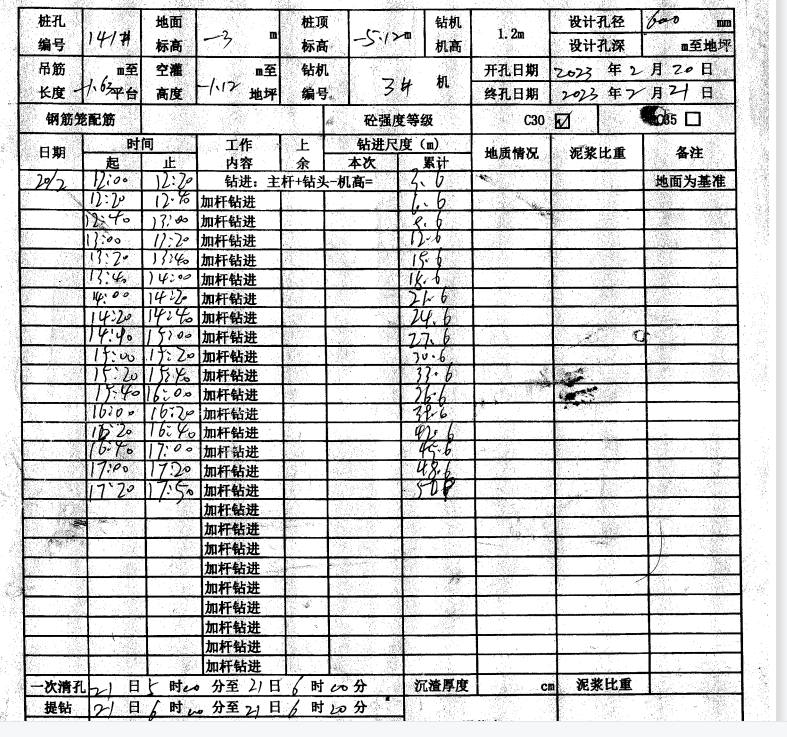 桩孔编号 141# 地面标高 -3 m 桩顶标高 -5.12m 钻机机高 1.2m 设计孔径 600 mm
设计孔深 m至地坪
吊筋长度 -1.63 m至平台 空灌高度 -1.12 m至地坪 钻机编号 3# 机 开孔日期 2023 年 2 月 20 日
终孔日期 2023 年 2 月 21 日
钢筋笼配筋 砼强度等级 C30 ☑ C35 □
日期 时间 工作内容 上余 钻进尺度(m) 地质情况 泥浆比重 备注
起 止 本次 累计
20/2 12:00 12:20 钻进:主杆+钻头-机高= 3.6 地面为基准
12:20 12:40 加杆钻进 6.6
12:40 13:00 加杆钻进 9.6
13:00 13:20 加杆钻进 12.6
13:20 13:40 加杆钻进 15.6
13:40 14:00 加杆钻进 18.6
14:00 14:20 加杆钻进 21.6
14:20 14:40 加杆钻进 24.6
14:40 15:00 加杆钻进 27.6
15:00 15:20 加杆钻进 30.6
15:20 15:40 加杆钻进 33.6
15:40 16:00 加杆钻进 36.6
16:00 16:20 加杆钻进
16:20 16:40 加杆钻进 42.6
16:40 17:00 加杆钻进 45.6
17:00 17:20 加杆钻进 48.6
17:20 17:50 加杆钻进
加杆钻进
加杆钻进
加杆钻进
加杆钻进
加杆钻进
加杆钻进
加杆钻进
加杆钻进
加杆钻进
一次清孔 21 日 5 时 00 分至 21 日 6 时 00 分 沉渣厚度 cm 泥浆比重
提钻 21 日 6 时 00 分至 21 日 6 时 20 分